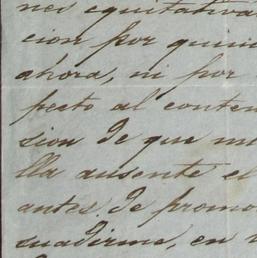 nes equitativa
cion por quin
ahora, ni por
pecto al conten
sion de que m
lla ausente el
antes de promo
suadirme, en